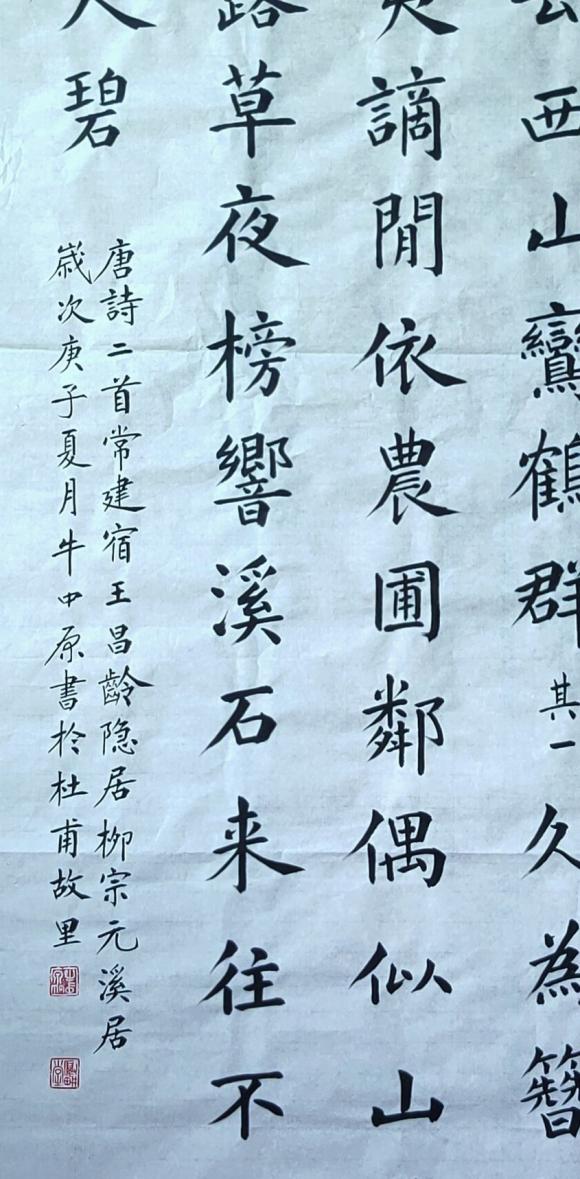 去西山鸞鶴群其一久為簪
夷謫閒依農圃鄰偶似山
露草夜榜響溪石来往不
人碧
唐詩二首常建宿王昌齡隐居柳宗元溪居
歲次庚子夏月牛中原書於杜甫故里